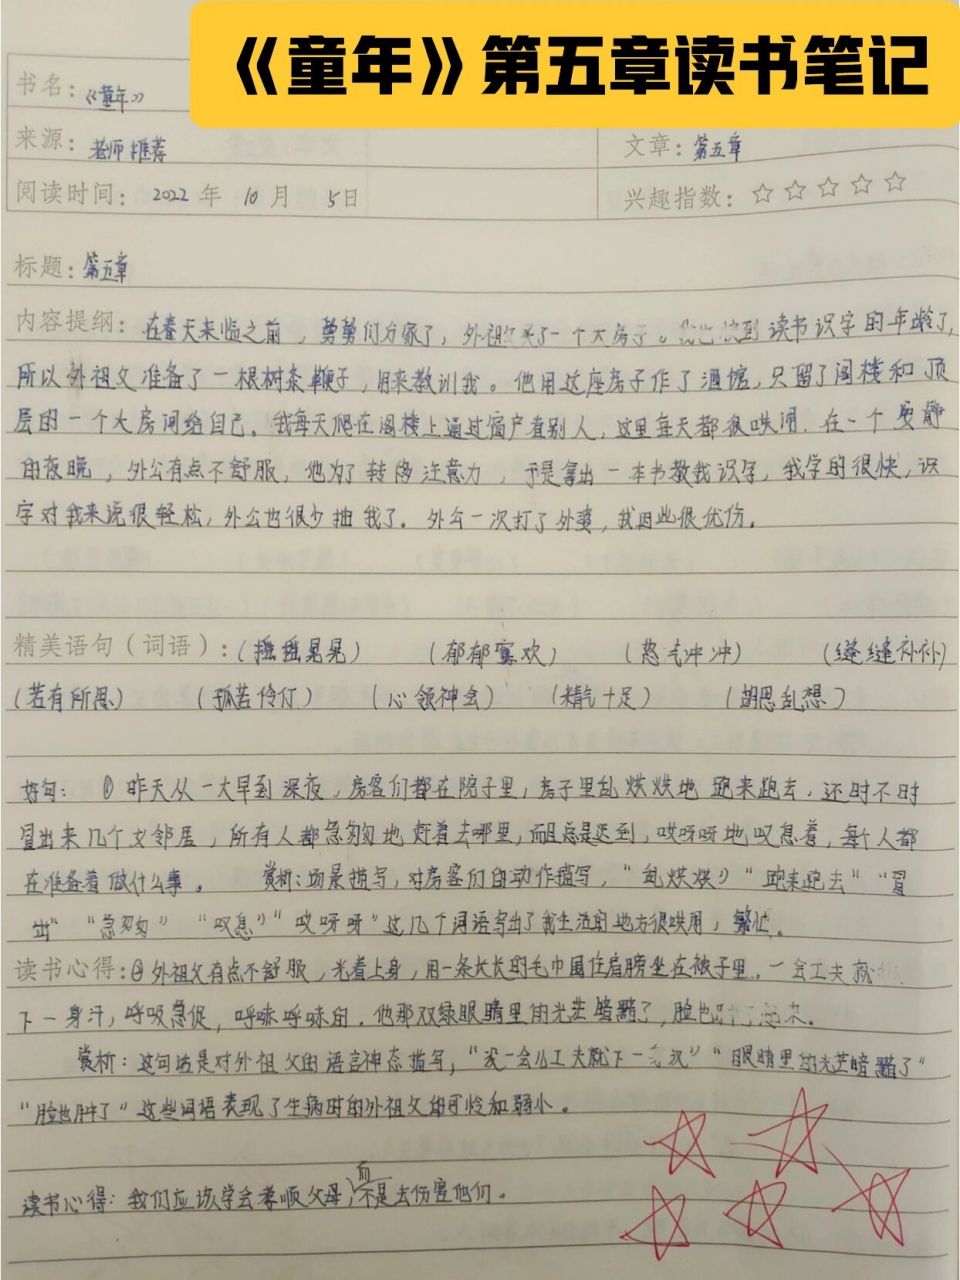 《童年》第五章读书笔记
书名：《童年》
来源：老师推荐 文章：第五章
阅读时间：2022年10月5日 兴趣指数：☆☆☆☆☆
标题：第五章
内容提纲：在春天来临之前，舅舅们分家了，外祖父买了一个大房子。我也快到读书识字的年龄了，
所以外祖父准备了一根树条鞭子，用来教训我。他用这座房子作了酒馆，只留了阁楼和顶
层的一个大房间给自己。我每天爬在阁楼上通过窗户看别人，这里每天都很哄闹。在一个安静
的夜晚，外公有点不舒服，他为了转移注意力，于是拿出一本书教我识字，我学的很快，识
字对我来说很轻松，外公也很少抽我了。外公一次打了外婆，我因此很优伤。
精美语句（词语）：（摇摇晃晃）（郁郁寡欢）（怒气冲冲）（缝缝补补）
（若有所思）（孤苦伶仃）（心领神会）（精气十足）（胡思乱想）
好句：①昨天从一大早到深夜，房客们都在院子里，房子里乱烘烘地跑来跑去，还时不时
冒出来几个女邻居，所有人都急匆匆地赶着去哪里，而且总是迟到，哎呀呀地叹息着，每个人都
在准备着做什么事。 赏析：场景描写，对房客们的动作描写，“乱烘烘”“跑来跑去”“冒
出”“急匆匆”“叹息”“哎呀呀”这几个词语写出了我生活的地方很哄闹，繁忙。
读书心得：②外祖父有点不舒服，光着上身，用一条长长的毛巾围住肩膀坐在被子里，一会工夫就
下一身汗，呼吸急促，呼哧呼哧的。他那双绿眼睛里的光芒暗黯了，脸也肿了起来。
赏析：这句话是对外祖父的语言神态描写，“没一会儿工夫就下一身汉”“眼睛里的光芒暗黯了”
“脸也肿了”这些词语表现了生病时的外祖父的可怜和弱小。
读书心得：我们应该学会孝顺父母，而不是去伤害他们。